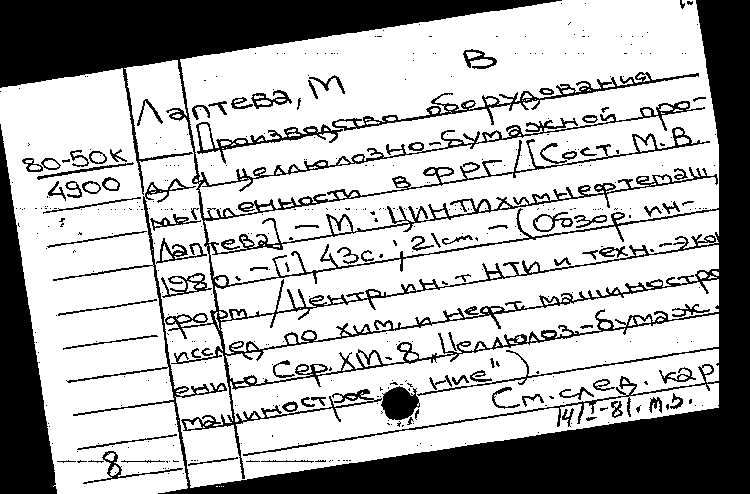 Лаптева, М В
Производство оборудования
80-50к
4900
для целлюлозно-бумажной про-
мышленности в ФРГ / [Сост. М.В.
Лаптева]. – М.: ЦИНТИхимнефтемаш,
1980. – [1], 43с.; 21см. – (Обзор. ин-
форм. / Центр. ин-т НТИ и техн.-экон
исслед. по хим. и нефт. машиностро
ению. Сер. ХМ-8 „Целлюлоз.-бумаж.
машиностроe ние").
См. след. кар
14/I-81. М.З.
8